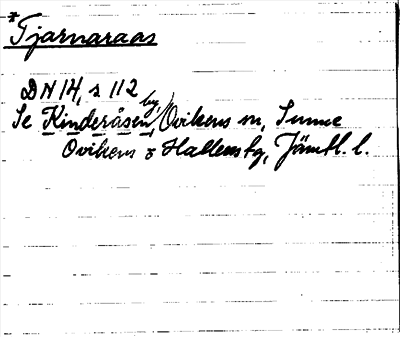 *Tjarnaraas
DN 14, s 112
Se Kinderåsen, by, Ovikens sn, Sunne
Ovikens o Hallens tg, Jämtl. l.